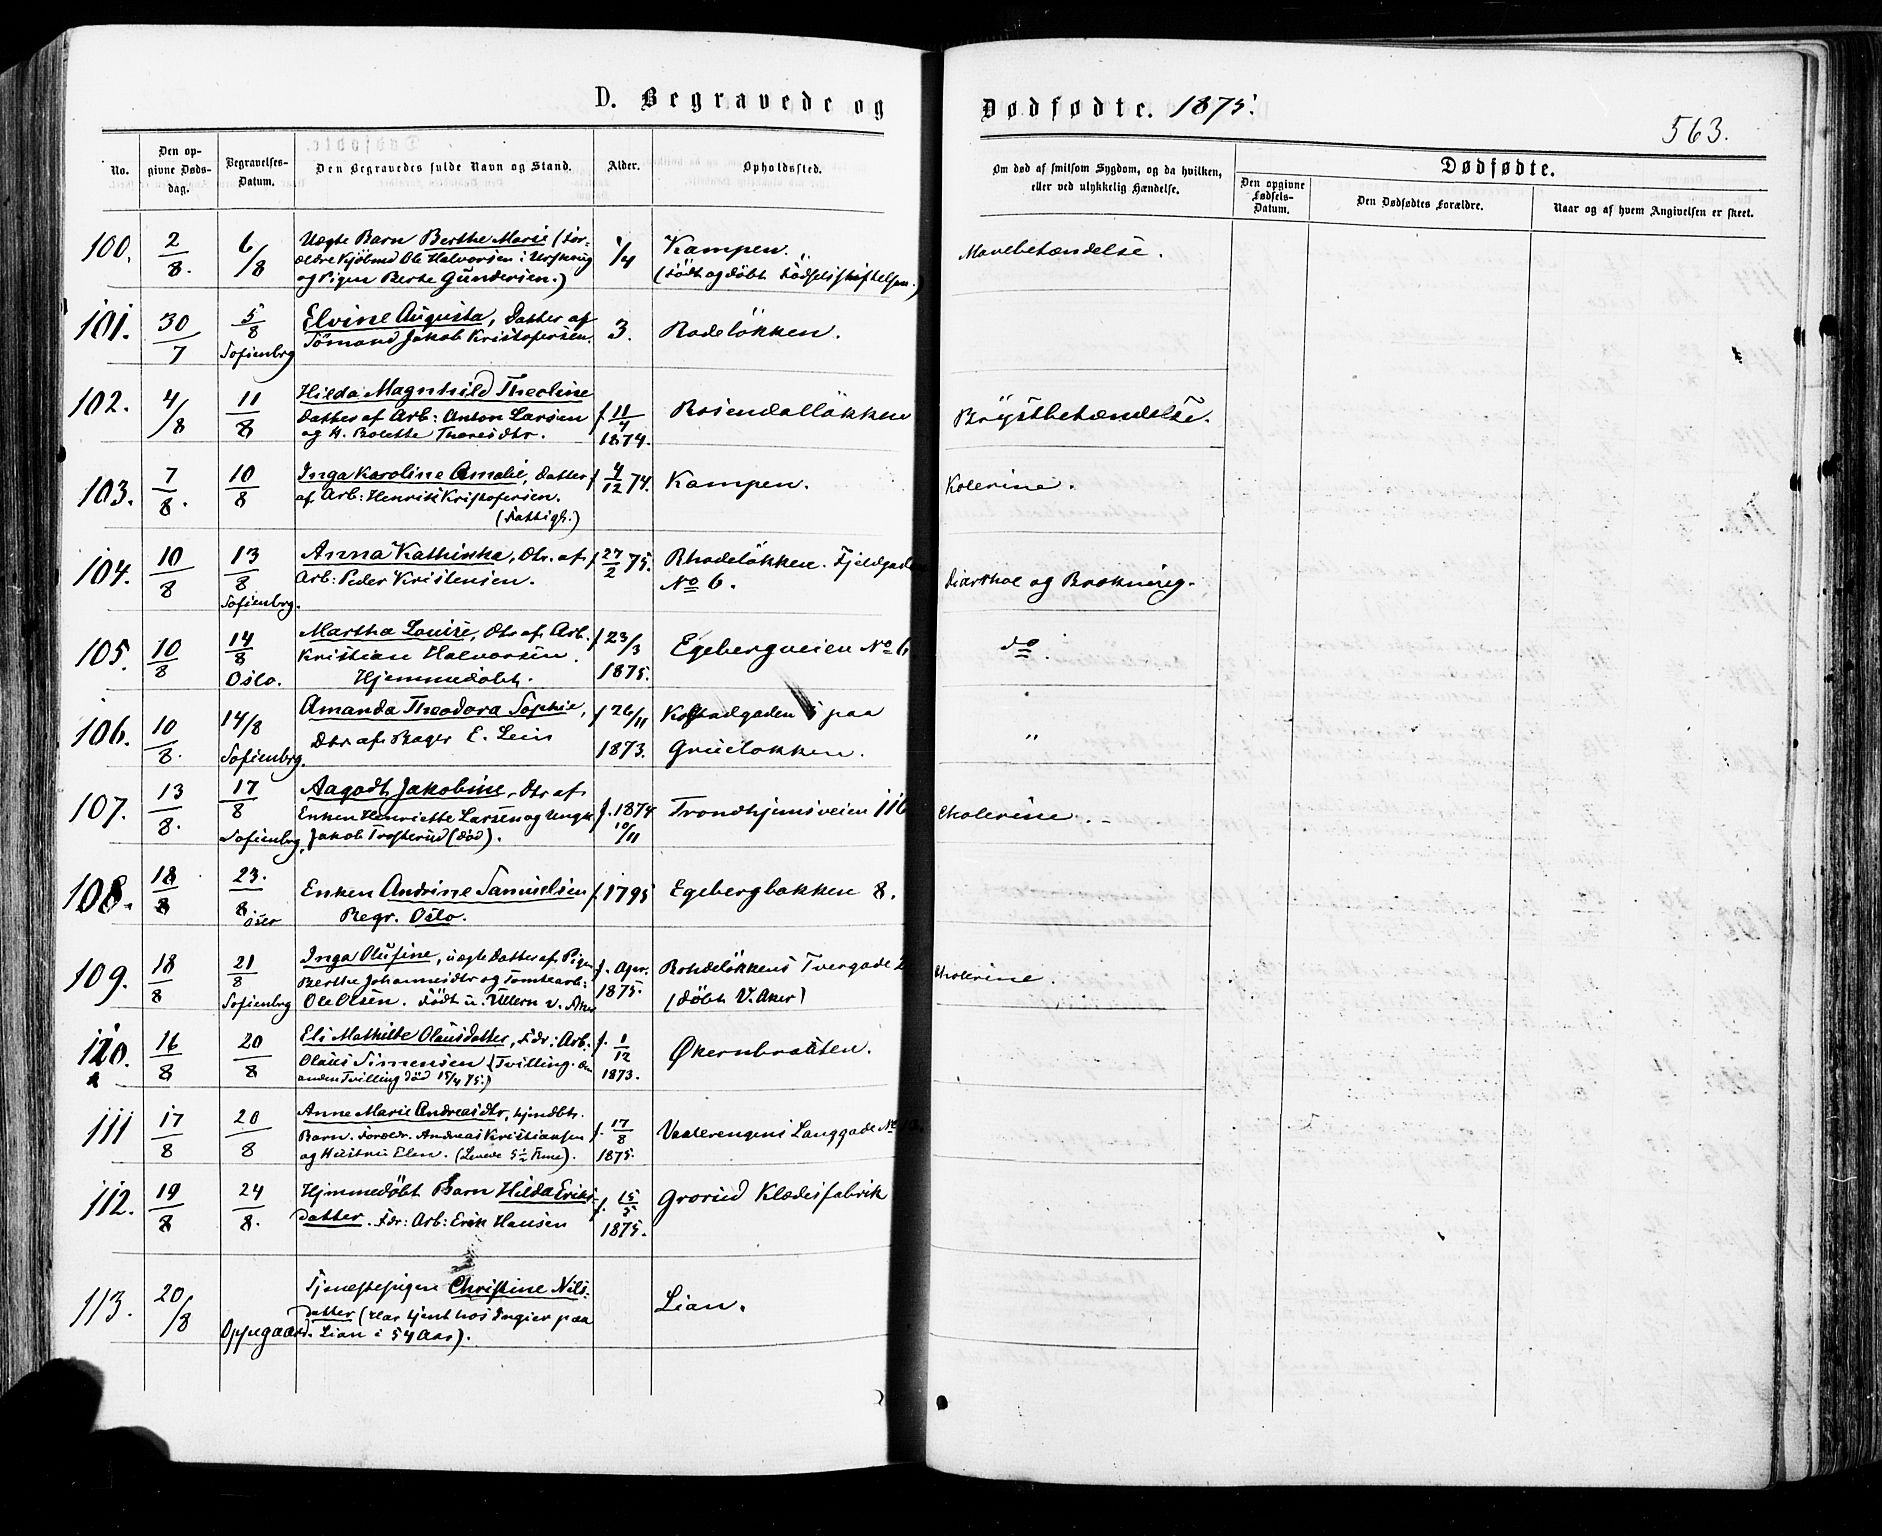 D. Begravede og Dødfødte. 1875.
563.
No.
Den op-
givne Døds-
dag.
Begravelses-
Datum.
Den Begravedes fulde Navn og Stand.
Alder.
Opholdssted.
Om død af smitsom Sygdom, og da hvilken,
eller ved ulykkelig Hændelse.
Dødfødte.
Den opgivne
Fødsels-
Datum.
Den Dødfødtes Forældre.
Naar og af hvem Angivelsen er skeet.
100. 2/8. 6/8 Uægte Barn Berthe Marie (For-
ældre Kjøbmd Ole Halvorsen i Urskoug
og Pigen Berte Gundersen.)
1/4 Kampen.
(Født og døbt Fødselsstiftelsen.)
Mavebetændelse.
101. 30/7 5/8 Sofienbrg
Elvine Augusta, Datter af
Sømand Jakob Kristofersen.
3. Rodeløkken.
102. 4/8 11/8
Hilda Magnhild Theoline
Datter af Arb: Anton Larsen
og H. Bolette Thoresdtr.
f 11/4 1874.
Rosendalløkken
Brystbetændelse.
103. 7/8. 10/8
Inga Karoline Amalie, Datter
af Arb: Henrik Kristofersen.
(Fattigh.)
f 4/12 74. Kampen.
Kolerine.
104. 10/8 13/8 Sofienbrg.
Anna Kathinka, Dtr. af
Arb: Peder Kristensen.
f 27/2 75. Rhodeløkken. Fjeldgaden
No 6.
Diarrhoe og Brækning.
105. 10/8 14/8 Oslo.
Martha Louise, Dtr af Arb.
Kristian Halvorsen.
Hjemmedøbt.
f 23/3 1875.
Egebergveien No 6
do.
106. 10/8. 14/8 Sofienbrg.
Amanda Theodora Sophie,
Dtr af Bager E. Leis
f 26/11 1873.
5 paa
Grüeløkken.
"
107. 13/8. 17/8 Sofienbrg,
Aagodt Jakobine, Dtr af
Enken Henriette Larsen og Ungk
Jakob Trosterud (død).
f. 1874 10/11
Trondhjemsveien 116
Cholerine.
108. 18/8 23./8. Oslo
Enken Andrine Samuelsen
Begr. Oslo.
f. 1795 Egebergbakken 8.
109. 18/8 21/8 Sofienbrg
Inga Olufine, uægte Datter af Pigen
Berthe Johannesdtr og Tomtearb:
Ole Olsen. Født u. Ullern v. Aker
f. Apr. 1875.
Rohdeløkkens Tvergade 2
(døbt V. Aker)
Cholerine.
110. 16/8 20/8
Eli Mathilde Olausdatter, Fdr: Arb.
Olaus Simensen (Tvilling. den
anden Tvilling død 15/4 75.)
f. 1/12 1873.
Økernbraaten.
111 17/8 20/8
Anne Marie Andreasdtr, hjmdbt.
Barn. Foreldr. Andreas Kristiansen
og Hustru Elen. (Levede 5½ Time).
f. 17/8 1875.
Vaalerengens Langgade No
112. 19/8 24/8.
Hjmmedøbt Barn Hilda Eriks-
datter. Fdr: Arb: Erik Hansen
f. 15/5 1875.
Grorud Klædesfabrik
113. 20/8 Oppegaard.
Tjenestepigen Christine Nils-
datter (Har tjent hos Ingier paa
Lian i 54 Aar).
Lian.